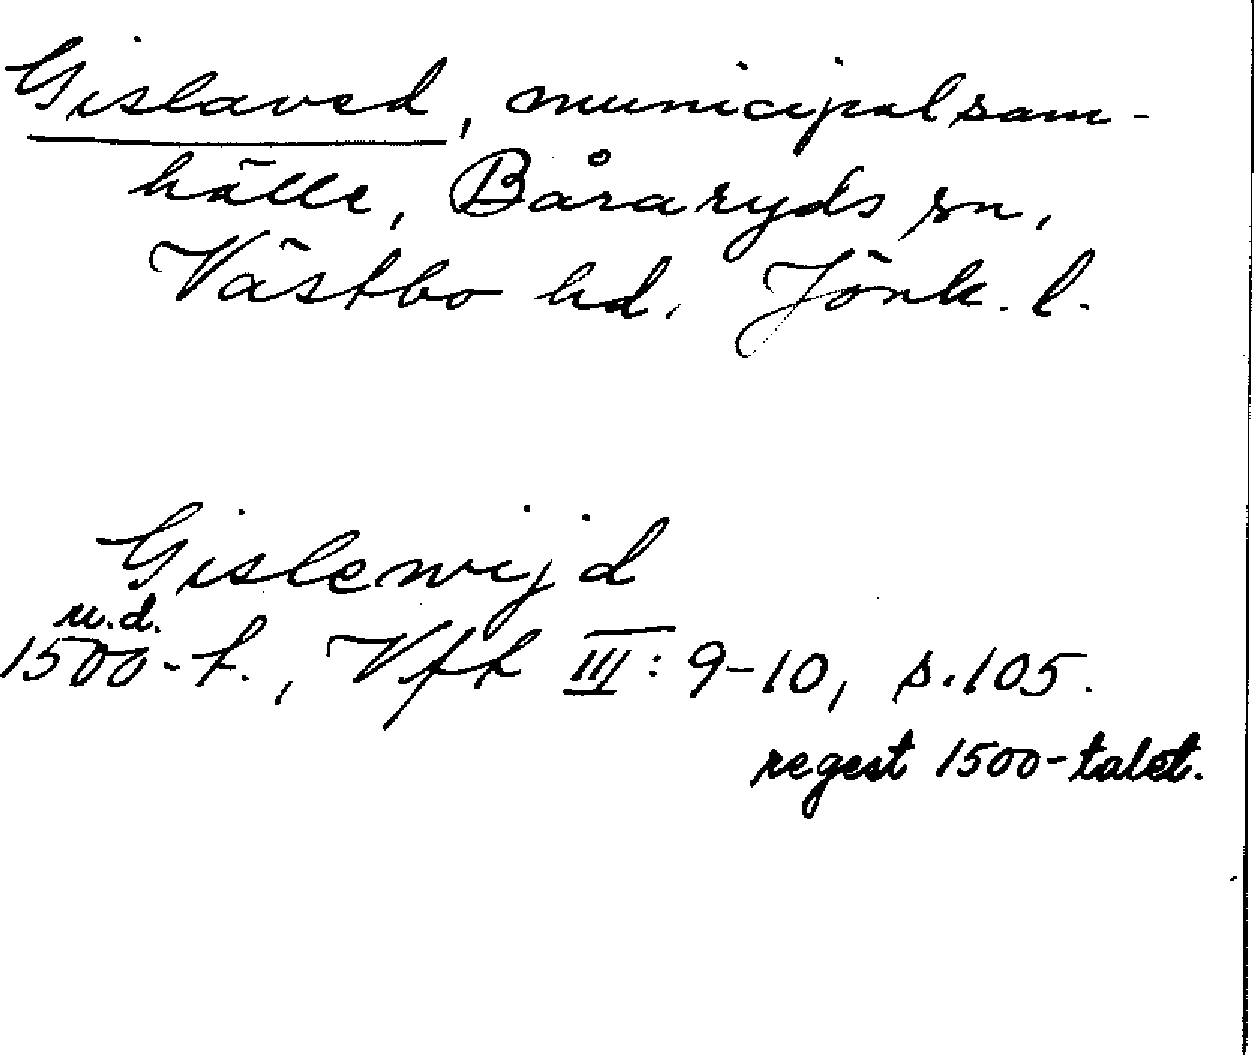 Gislaved, municipalsam-
hälle, Båraryds sn,
Västbo hd. Jönk. l.
Gislewijd
u.d.
1500-t., Vfk III: 9-10, s. 105.
regest 1500-talet.